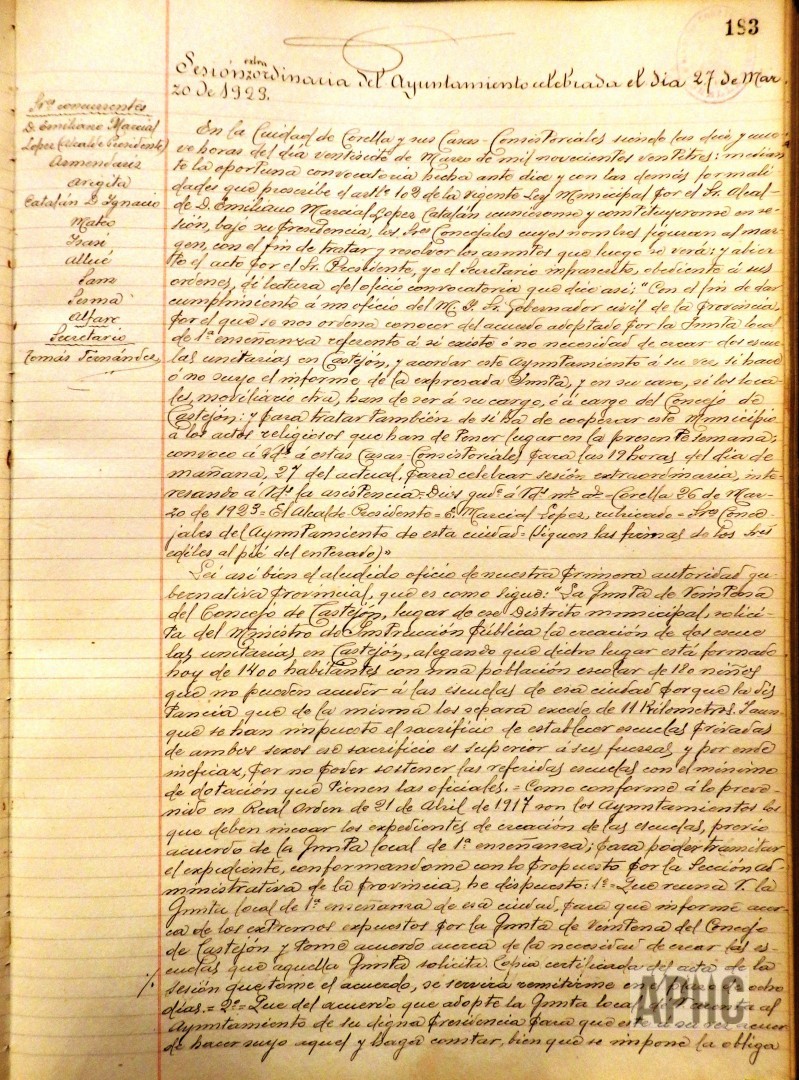 183
Sesión extraordinaria del Ayuntamiento celebrada el dia 27 de Mar
zo de 1923.
Sres concurrentes
D. Emiliano Marcial
Lopez (Alcalde Presidente)
Armendariz
Arigita
Catalán D. Ignacio
Mateo
Isasi
Allué
Sanz
Sesma
Alfaro
Secretario
Tomás Fernández
En la Ciudad de Corella y sus Casas-Consistoriales siendo las diez y nue
ve horas del día ventisiete de Marzo de mil novecientos ventitres: median
te la oportuna convocatoria hecha ante diem y con las demás formali
dades que prescribe el artº 102 de la vigente Ley Municipal por el Sr. Alcal-
de D. Emiliano Marcial Lopez Catalán reunieronse y constituyeronse en se-
sión, bajo su Presidencia, los Sres Concejales cuyos nombres figuran al mar-
gen, con el fin de tratar y resolver los asuntos que luego se verá: y abier-
to el acto por el Sr. Presidente, yo el Secretario infrascrito, obediente á sus
ordenes, dí lectura del oficio convocatoria que dice asi: "Con el fin de dar
cumplimiento á un oficio del M. I. Sr. Gobernador civil de la Provincia,
por el que se nos ordena conocer del acuerdo adoptado por la Junta local
de 1ª enseñanza referente á si existe ó no necesidad de crear dos escue
las unitarias en Castejón, y acordar este Ayuntamiento á su vez si hace
ó no suyo el informe de la expresada Junta, y en su caso, si los loca-
les, moviliario etra, han de ser á su cargo, ó á cargo del Concejo de
Castejón: y para tratar también de si ha de cooperar este Municipio
a los actos religiosos que han de tener lugar en la presente semana,
convoco á Vd. á estas Casas-Consistoriales para las 19 horas del día de
mañana, 27 del actual, para celebrar sesión extraordinaria, inte-
resando á Vd. la asistencia= Dios gude á Vd. ms as= Corella 26 de Mar-
zo de 1923= El Alcalde-Presidente= E. Marcial Lopez, rubricado= Sres Conce-
jales del Ayuntamiento de esta ciudad= (Siguen las firmas de los Sres
ediles al pié del enterado)»
Leí asi bien el aludido oficio de nuestra primera autoridad gu-
bernativa provincial, que es como sigue: "La Junta de Veintena
del Concejo de Castejón, lugar de ese Distrito municipal, solici-
ta del Ministro de Instrucción Pública la creación de dos escue
las unitarias en Castejón, alegando que dicho lugar está formado
hoy de 1400 habitantes con una población escolar de 180 niños
que no pueden acudir á las escuelas de esa ciudad porque la dis
tancia que de la misma los separa excede de 11 Kilometros. Y aun-
que se han impuesto el sacrificio de establecer escuelas privadas
de ambos sexos ese sacrificio es superior á sus fuerzas, y por ende
ineficaz, por no poder sostener las referidas escuelas con el mínimo
de dotación que tienen las oficiales.= Como conforme á lo preve-
nido en Real Orden de 21 de Abril de 1917 son los Ayuntamientos los
que deben incoar los expedientes de creación de las escuelas, previo
acuerdo de la Junta local de 1ª enseñanza; para poder tramitar
el expediente, conformandome con lo propuesto por la Sección ad-
ministrativa de la provincia, he dispuesto: 1º= Que reuna V. la
Junta local de 1ª enseñanza de esa ciudad, para que informe acer-
ca de los extremos expuestos por la Junta de Veintena del Concejo
de Castejón y tome acuerdo acerca de la necesidad de crear las es-
cuelas que aquella Junta solicita. Copia certificada del acta de la
sesión que tome el acuerdo, se servirá remitirme en ocho
días.= 2º= Que del acuerdo que adopte la Junta local dé cuenta al
Ayuntamiento de su digna Presidencia para que este á su vez acuer-
de hacer suyo aquel y haga constar, bien que se impone la obliga
APIC